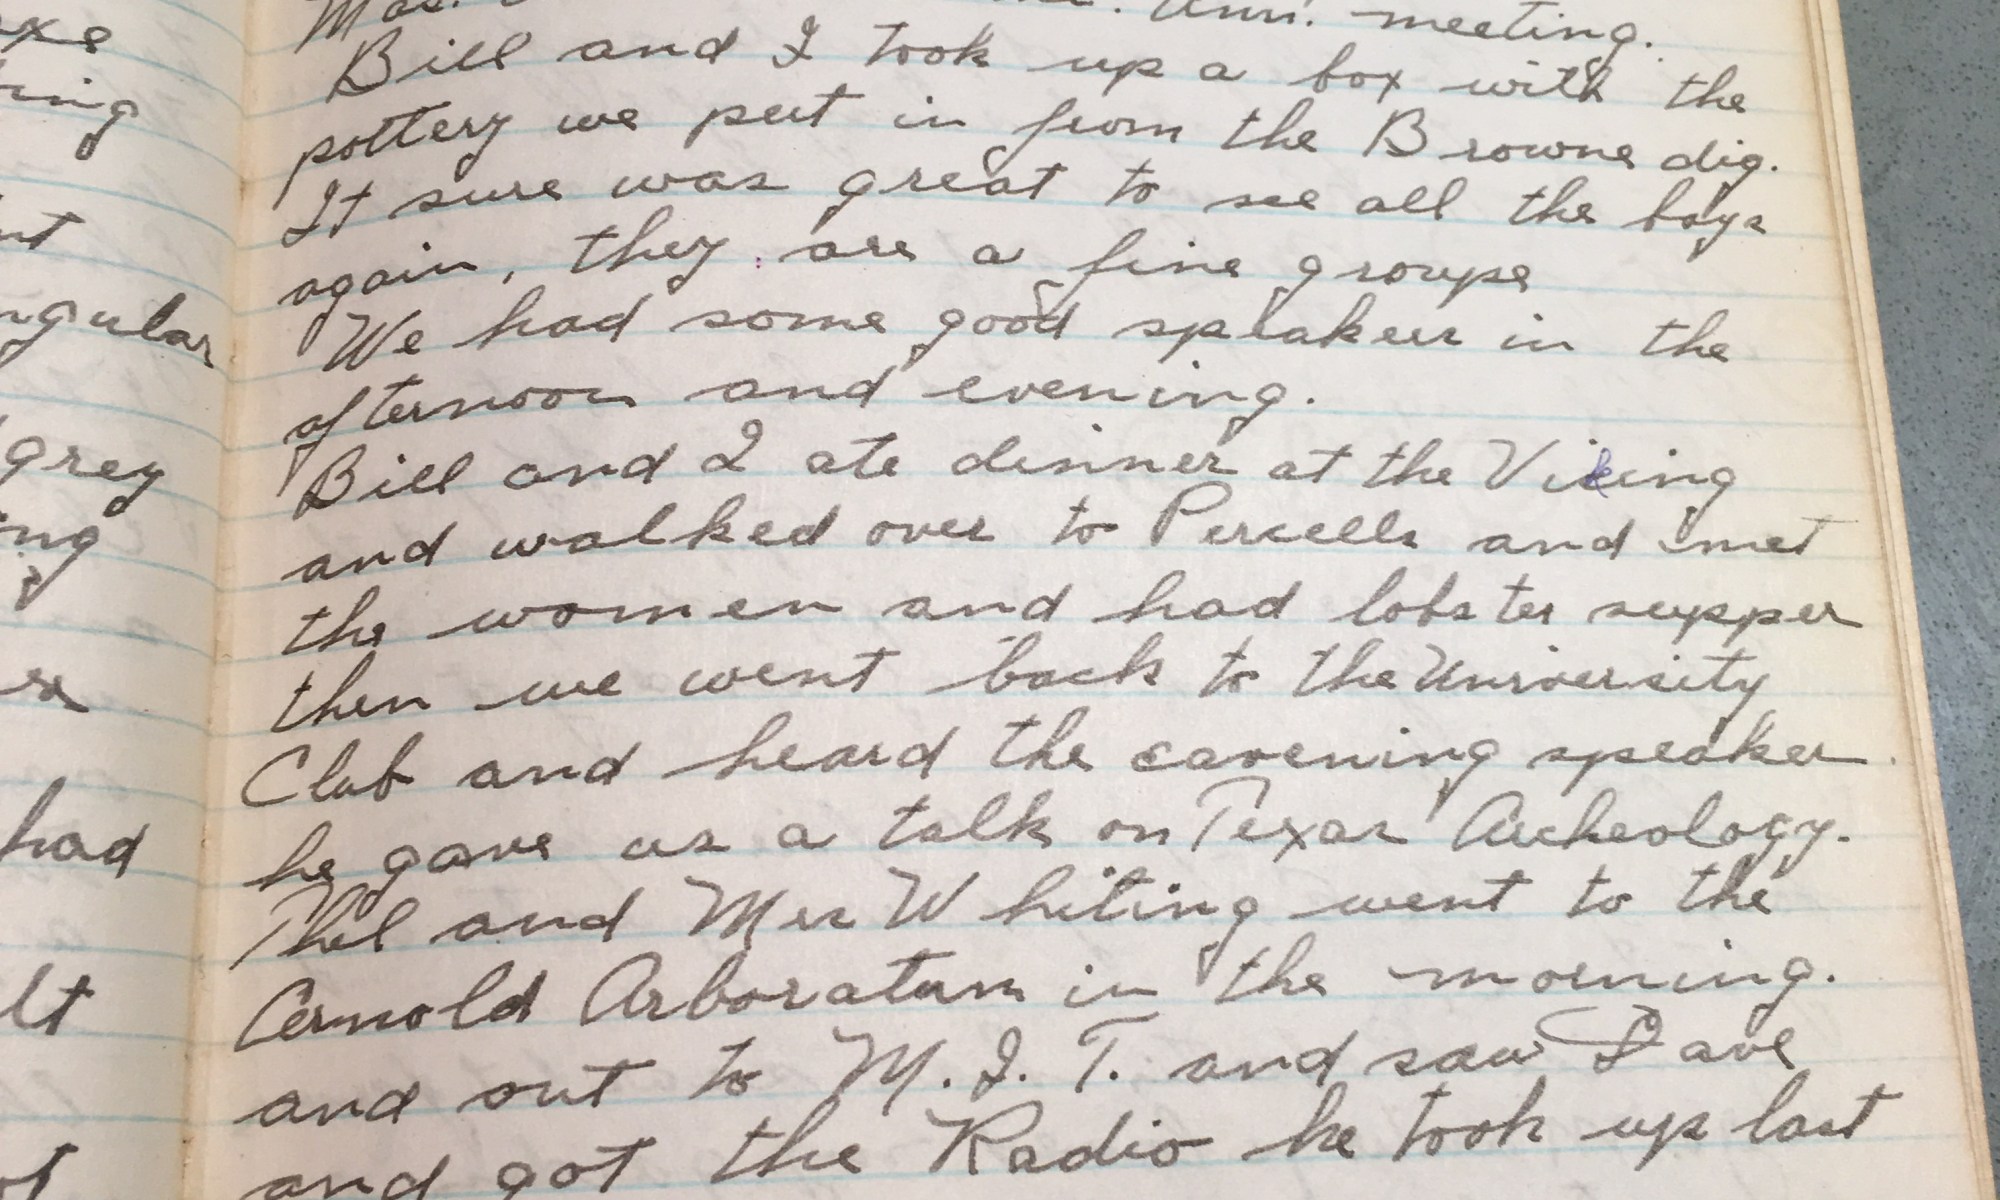 axe
ing
nt
ngular
grey
ing
had
lt
Ann. meeting.
Bill and I took up a box with the
pottery we put in from the Browne dig.
It sure was great to see all the boys
again, they are a fine groupe
We had some good speakers in the
afternoon and evening.
Bill and I ate dinner at the Viking
and walked over to Percells and met
the women and had lobster supper
then we went back to the University
Club and heard the eavening speaker
he gave us a talk on Texas Archeology.
Thel and Mrs Whiting went to the
Arnold Arboratum in the morning.
and out to M.I.T. and saw Dave
and got the Radio he took up last